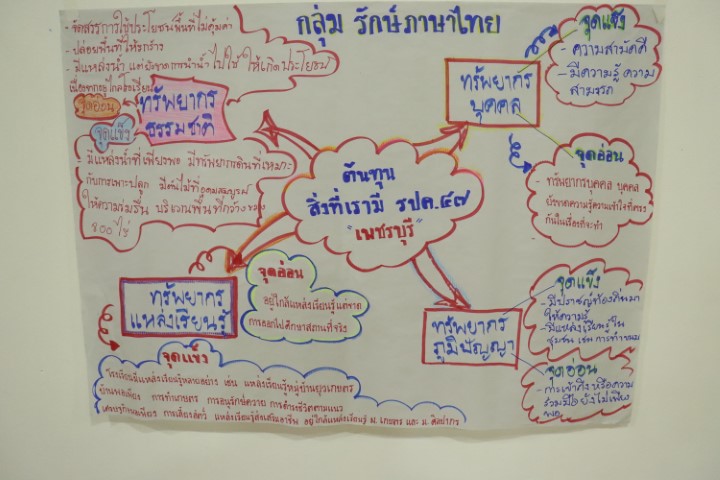 กลุ่ม รักษ์ภาษาไทย
- จัดสรรการใช้ประโยชน์พื้นที่ไม่คุ้มค่า
- ปล่อยพื้นที่ให้รกร้าง
- มีแหล่งน้ำ แต่ยังขาดการนำน้ำไปใช้ให้เกิดประโยชน์
เนื่องจากอยู่ไกลโรงเรียน
จุดอ่อน
ทรัพยากร
ธรรมชาติ
จุดแข็ง
- มีแหล่งน้ำที่เพียงพอ มีทรัพยากรดินที่เหมาะ
กับการเพาะปลูก มีต้นไม้ที่อุดมสมบูรณ์
ให้ความร่มรื่น บริเวณพื้นที่กว้างขวาง
800 ไร่
ทรัพยากร
บุคคล
จุดแข็ง
- ความสามัคคี
- มีความรู้ ความ
สามารถ
จุดอ่อน
- ทรัพยากรบุคคล บุคคล
ยังขาดความรู้ความเข้าใจที่ตรง
กันในเรื่องที่จะทำ
ต้นทุน
สิ่งที่เรามี รปค.๔๗
"เพชรบุรี"
ทรัพยากร
แหล่งเรียนรู้
จุดอ่อน
อยู่ใกล้แหล่งเรียนรู้แต่ขาด
การออกไปศึกษาสถานที่จริง
จุดแข็ง
โรงเรียนมีแหล่งเรียนรู้หลายอย่าง เช่น แหล่งเรียนรู้หมู่บ้านยุวเกษตร
บ้านพอเพียง การทำเกษตร การอนุรักษ์ควาย การดำรงชีวิตตามแนว
เศรษฐกิจพอเพียง การเลี้ยงสัตว์ แหล่งเรียนรู้ส่งเสริมอาชีพ อยู่ใกล้แหล่งเรียนรู้ ม.เกษตร และ ม.ศิลปากร
ทรัพยากร
ภูมิปัญญา
จุดแข็ง
- มีปราชญ์ท้องถิ่นมา
ให้ความรู้
- มีแหล่งเรียนรู้ใน
ชุมชน เช่น การทำขนม
จุดอ่อน
- การเข้าถึงหรือความ
ร่วมมือยังไม่เพียง
พอ